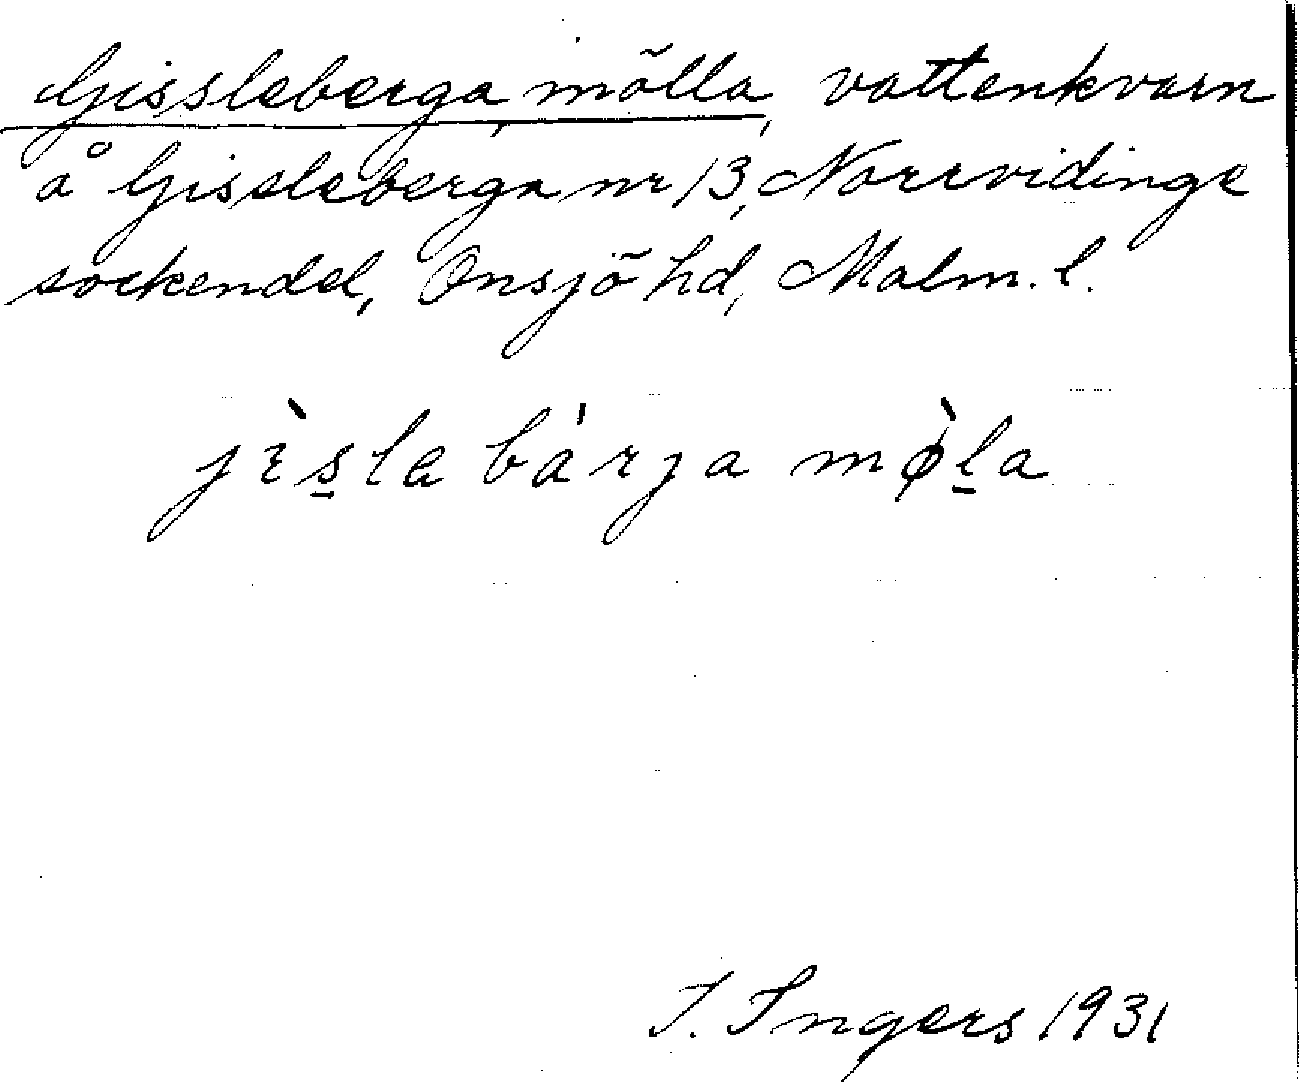 Gissleberga mölla, vattenkvarn
å Gissleberga nr 13, Norrvidinge
sockendel, Onsjö hd, Malm. l.
jìs̲la bá'rja mø̀l̲a
I. Ingers 1931